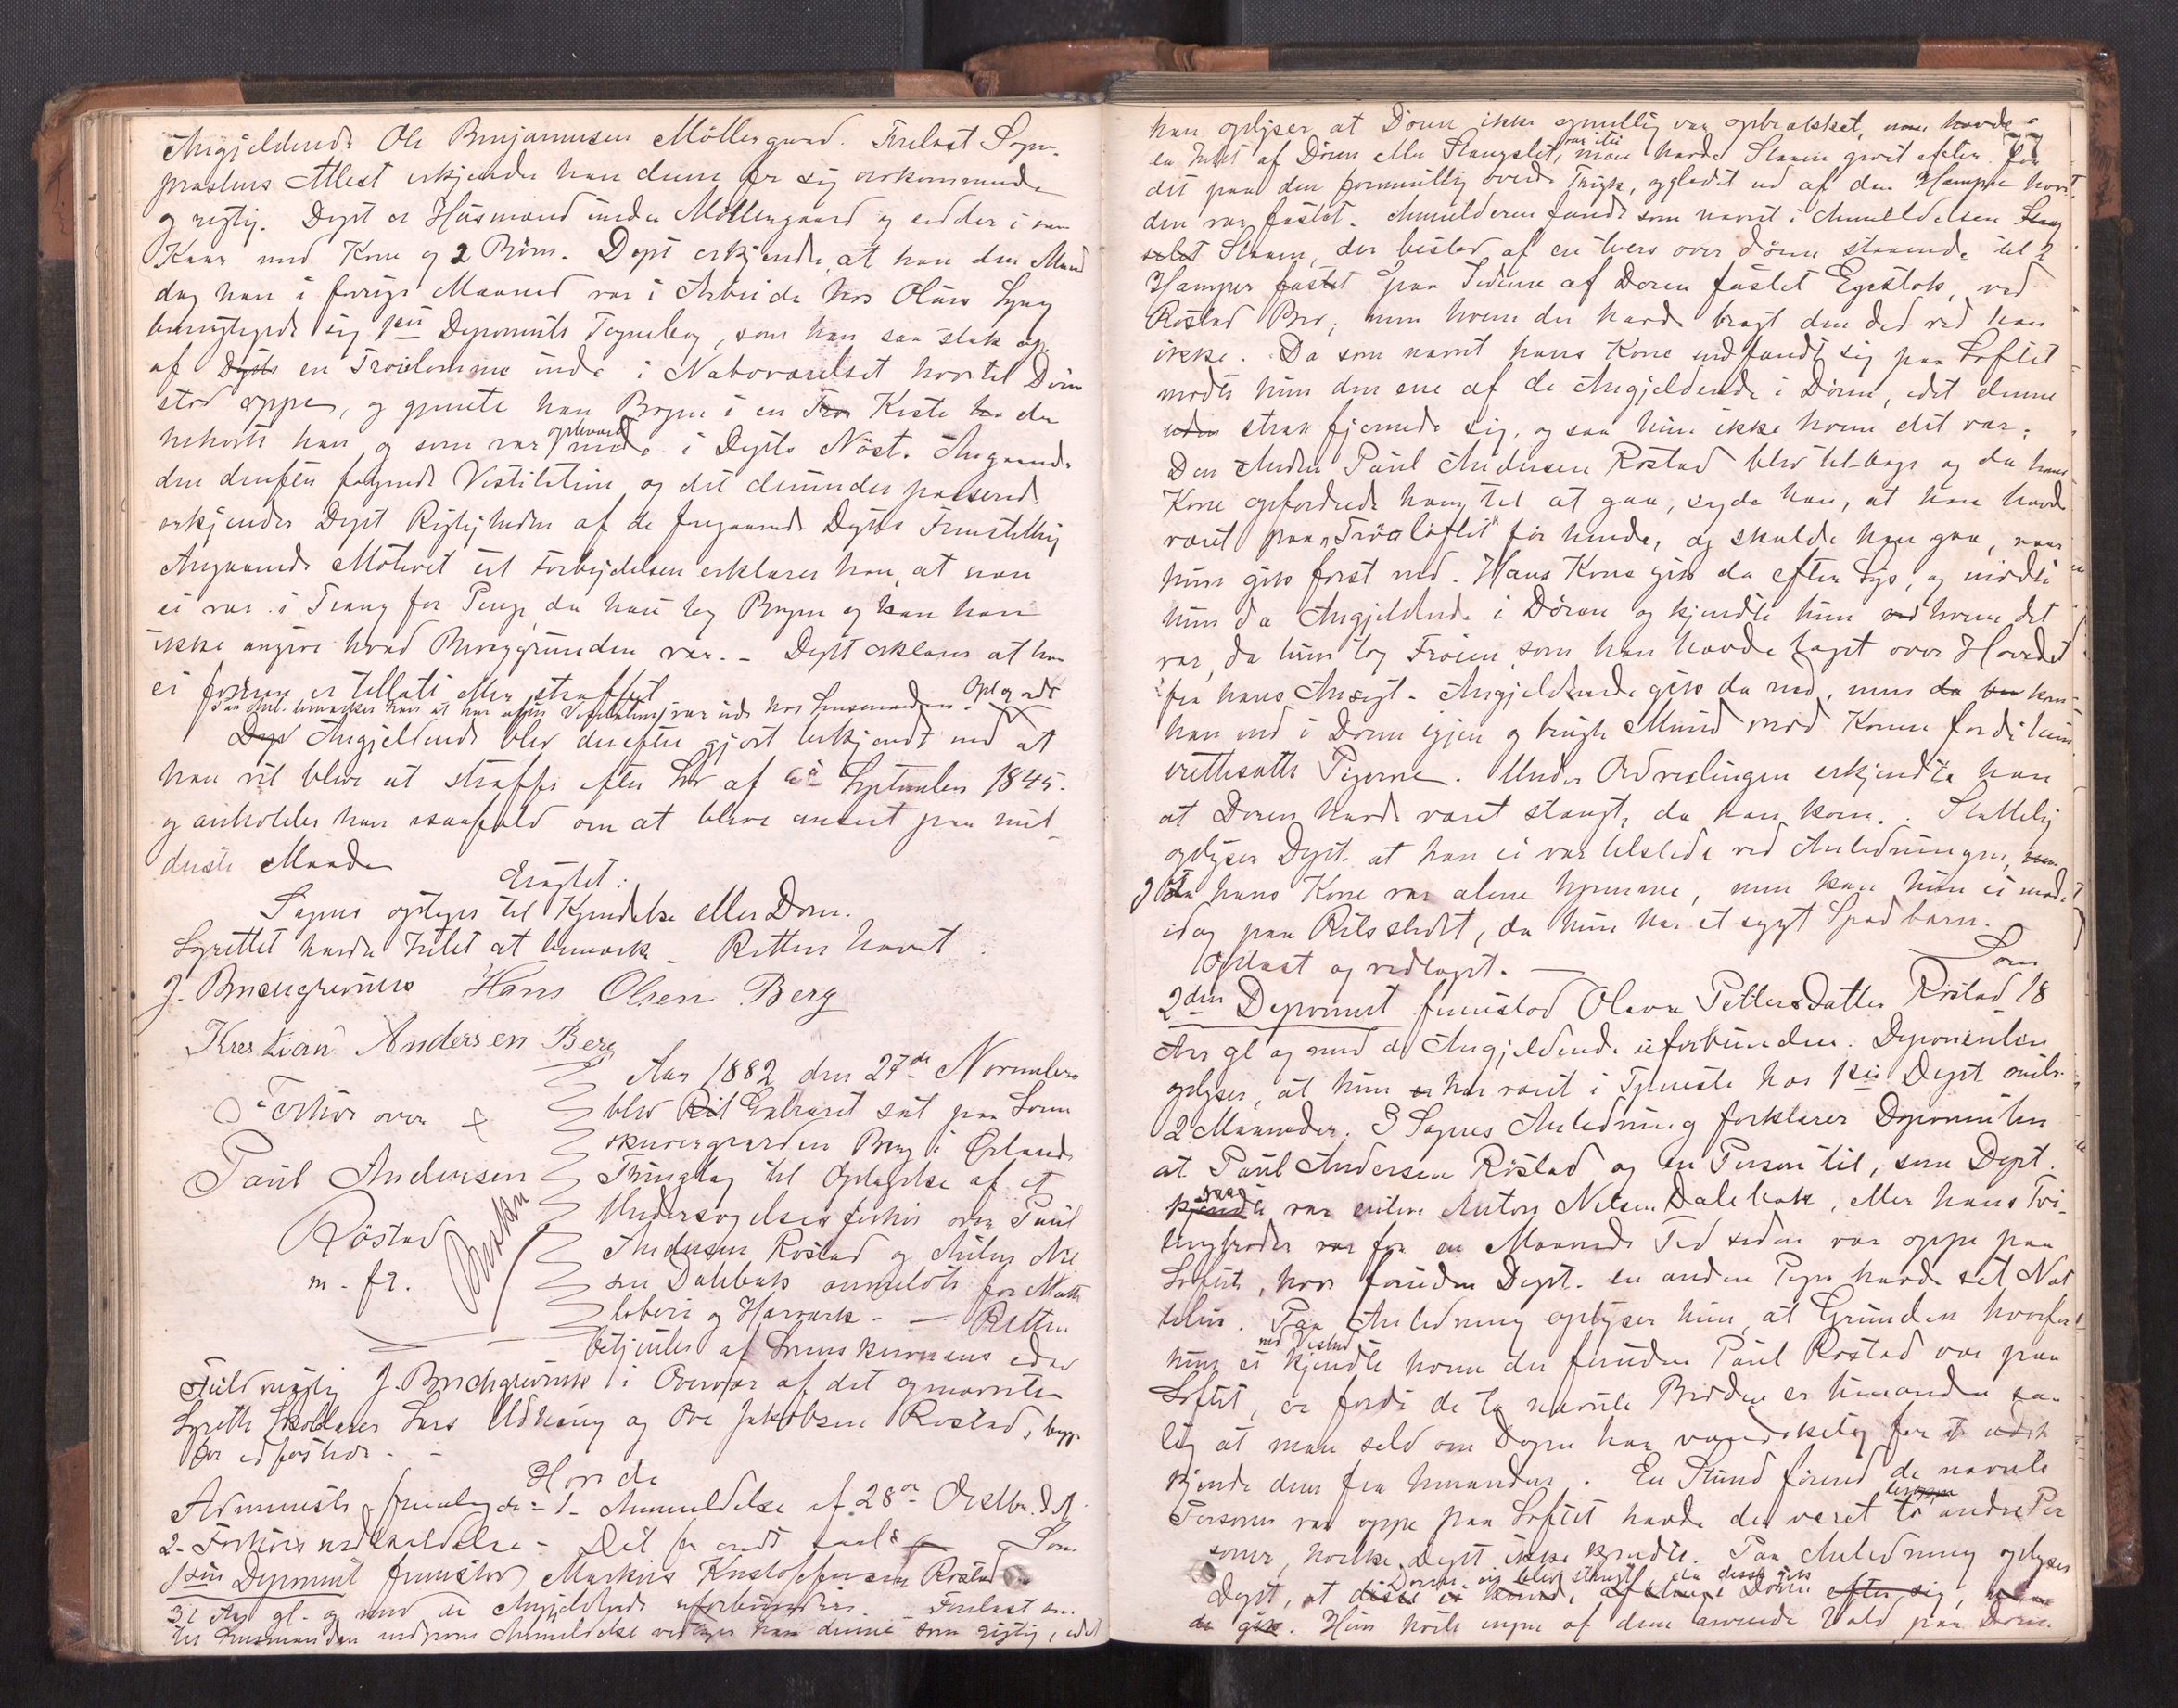 Angjeldende Ole Benjaminsen Möllegaard. Forelæst Sogne-
præstens Attest erkjender han denne for sig vedkommende
rigtig. Dept er Husmand under Möllegaard og sidder i
Kaar med Kone og 2 Börn. Dept erkjender, at han den Mand
dag han i forrige Maaned var i Arbeide hos Olaus
bemægtigede sig 1ste Deponents Tegnebog, som han saa stak op
af en Tröielomme inde i Naboværelset hvortil Dören
stod oppe, og gjemte han Bogen i en Kiste der
tilhörte han og som var opbevaret inde i Depts Nöst. Angaaende
den derefter fölgende Visitation og det derunder passerede
erkjender Dept Rigtigheden af de foregaaende Depts Fremstilling
Angaaende Motivet til Forbrydelsen erklærer han, at han
ei var i Trang for Penge, da han tog Bogen og kan han
ikke angive hvad Bevæggrunden var. - Dept erklærer at han
ei forhen er tiltalt eller straffet
Paa Anl. bemærker han at han efter Visitationen var inde hos Lensmanden. Opl og vedt
Angjeldende blev derefter gjort bekjendt med at
han vil blive at straffe efter Lov af 6te September 1845.
og anholder han isaafald om at blive anseet paa mil-
deste Maade
Eragtet:
Sagen optages til Kjendelse eller Dom.
Lagrettet havde Intet at bemærke - Retten hævet.
J. Brechgrevinus Hans Olsen Berg
Kristian Andersen Berg
Forhör over
Paul Andersen
Röstad
m. fl.
Aar 1882 den 27de November
blev Extraret sat paa Lens
mandsgaarden Berg i Örlands
Thinglag til Optagelse af et
Undersögelsesforhör over Paul
Andersen Röstad og Anton Niel
sen Dalebak anmeldte for Natte
löberi og Hærværk. - Retten
betjentes af Sorenskriverens edsv
Fuldmægtig J. Brechgrevinus i Overvær af det opnævnte
Lagrette Lars Uthaug og Ove Jakobsen Röstad, begge
för edfæstede. -
Hvorda
Administr. fremlagde: 1. Anmeldelse af 28de Oktbr. d.A.
2. Forhörs Det for endt Som
1ste Deponent fremstod Markus Kristoffersen Röstad
32 Aar gl. og med de Angjeldende uforbunden. Forelæst en
til Lensmanden indgiven Anmeldelse vedtager han denne som rigtig, idet
han oplyser at Dören ikke egentlig var opbrækket, men havde
en Mut af Dören eller Stængslet, var itu men havde Slaaen givet efter for
det paa den formentlig övede Tryk, og gledet ud af den Hampe hvori
den var fæstet. Anmelderen fandt som nævnt i Anmeldelsen
Slaaen, der bestod af en tvers over Dören staaende til 2
Hamper paa Siderne af Dören fæstet Egestok, ved
Röstad Bro; men hvem der havde bragt den did ved han
ikke. Da som nævnt hans Kone indfandt sig paa Loftet
mödte hun den ene af de Angjeldende i Dören, idet denne
strax fjernede sig, og saa hun ikke hvem det var.
Den Anden Paul Andersen Röstad blev tilbage og da hans
Kone opfordrede ham til at gaa, sagde han, at han havde
været paa "Tröaloftet" för hende, og skulde han gaa, naar
hun gik först ned. Hans Kone gik da efter Lys, og mödte
hun da Angjeldende i Dören og kjendte hun hvem det
var, da hun tog Tröien, som han havde taget over Hovedet
fra hans Ansigt. Angjeldende gik da ned, men kom
han ind i Dören igjen og brugte Mund mod Konen fordi hun
irettesatte Pigerne. Under Ordvexlingen erkjendte han
at Dören havde været stængt, da han kom. Sluttelig
oplyser Dept. at han ei var tilstede ved Anledningen,
da hans Kone var alene hjemme, men kan hun ei möde
idag paa Retsstedet, da hun har et sygt Spædbarn.
Oplæst og vedtaget. - Som
2den Deponent fremstod Olava Pettersdatter Röstad 18
Aar gl og med de Angjeldende uforbunden. Deponenten
oplyser, at hun har været i Tjeneste hos 1ste Dept omtr.
2 Maaneder. I Sagens Anledning forklarer Deponenten
at Paul Andersen Röstad og en Person til, som Dept.
saa var enten Anton Nilsen Dalebak, eller hans Tvi-
lingbroder var for en Maaneds Tid siden var oppe paa
Loftet, hvor foruden Dept. en anden Pige havde sit Nat
telein. Paa Anledning oplyser hun, at Grunden hvorfor
hun ei med Vished kjendte hvem der foruden Paul Röstad var paa
Loftet, er fordi de to nævnte Brödre er hinanden saa
lig at man selv om Dagen har vanskelig for at
kjende dem fra hinanden. En Stund förend de nævnte
Personer var oppe paa Loftet havde der været to andre Per
soner, hvilke Dept ikke kjendte. Paa Anledning oplyser
Dept, at Dören ei blev stængt, da disse gik
Hun hörte ingen af dem anvende Vold paa Dören